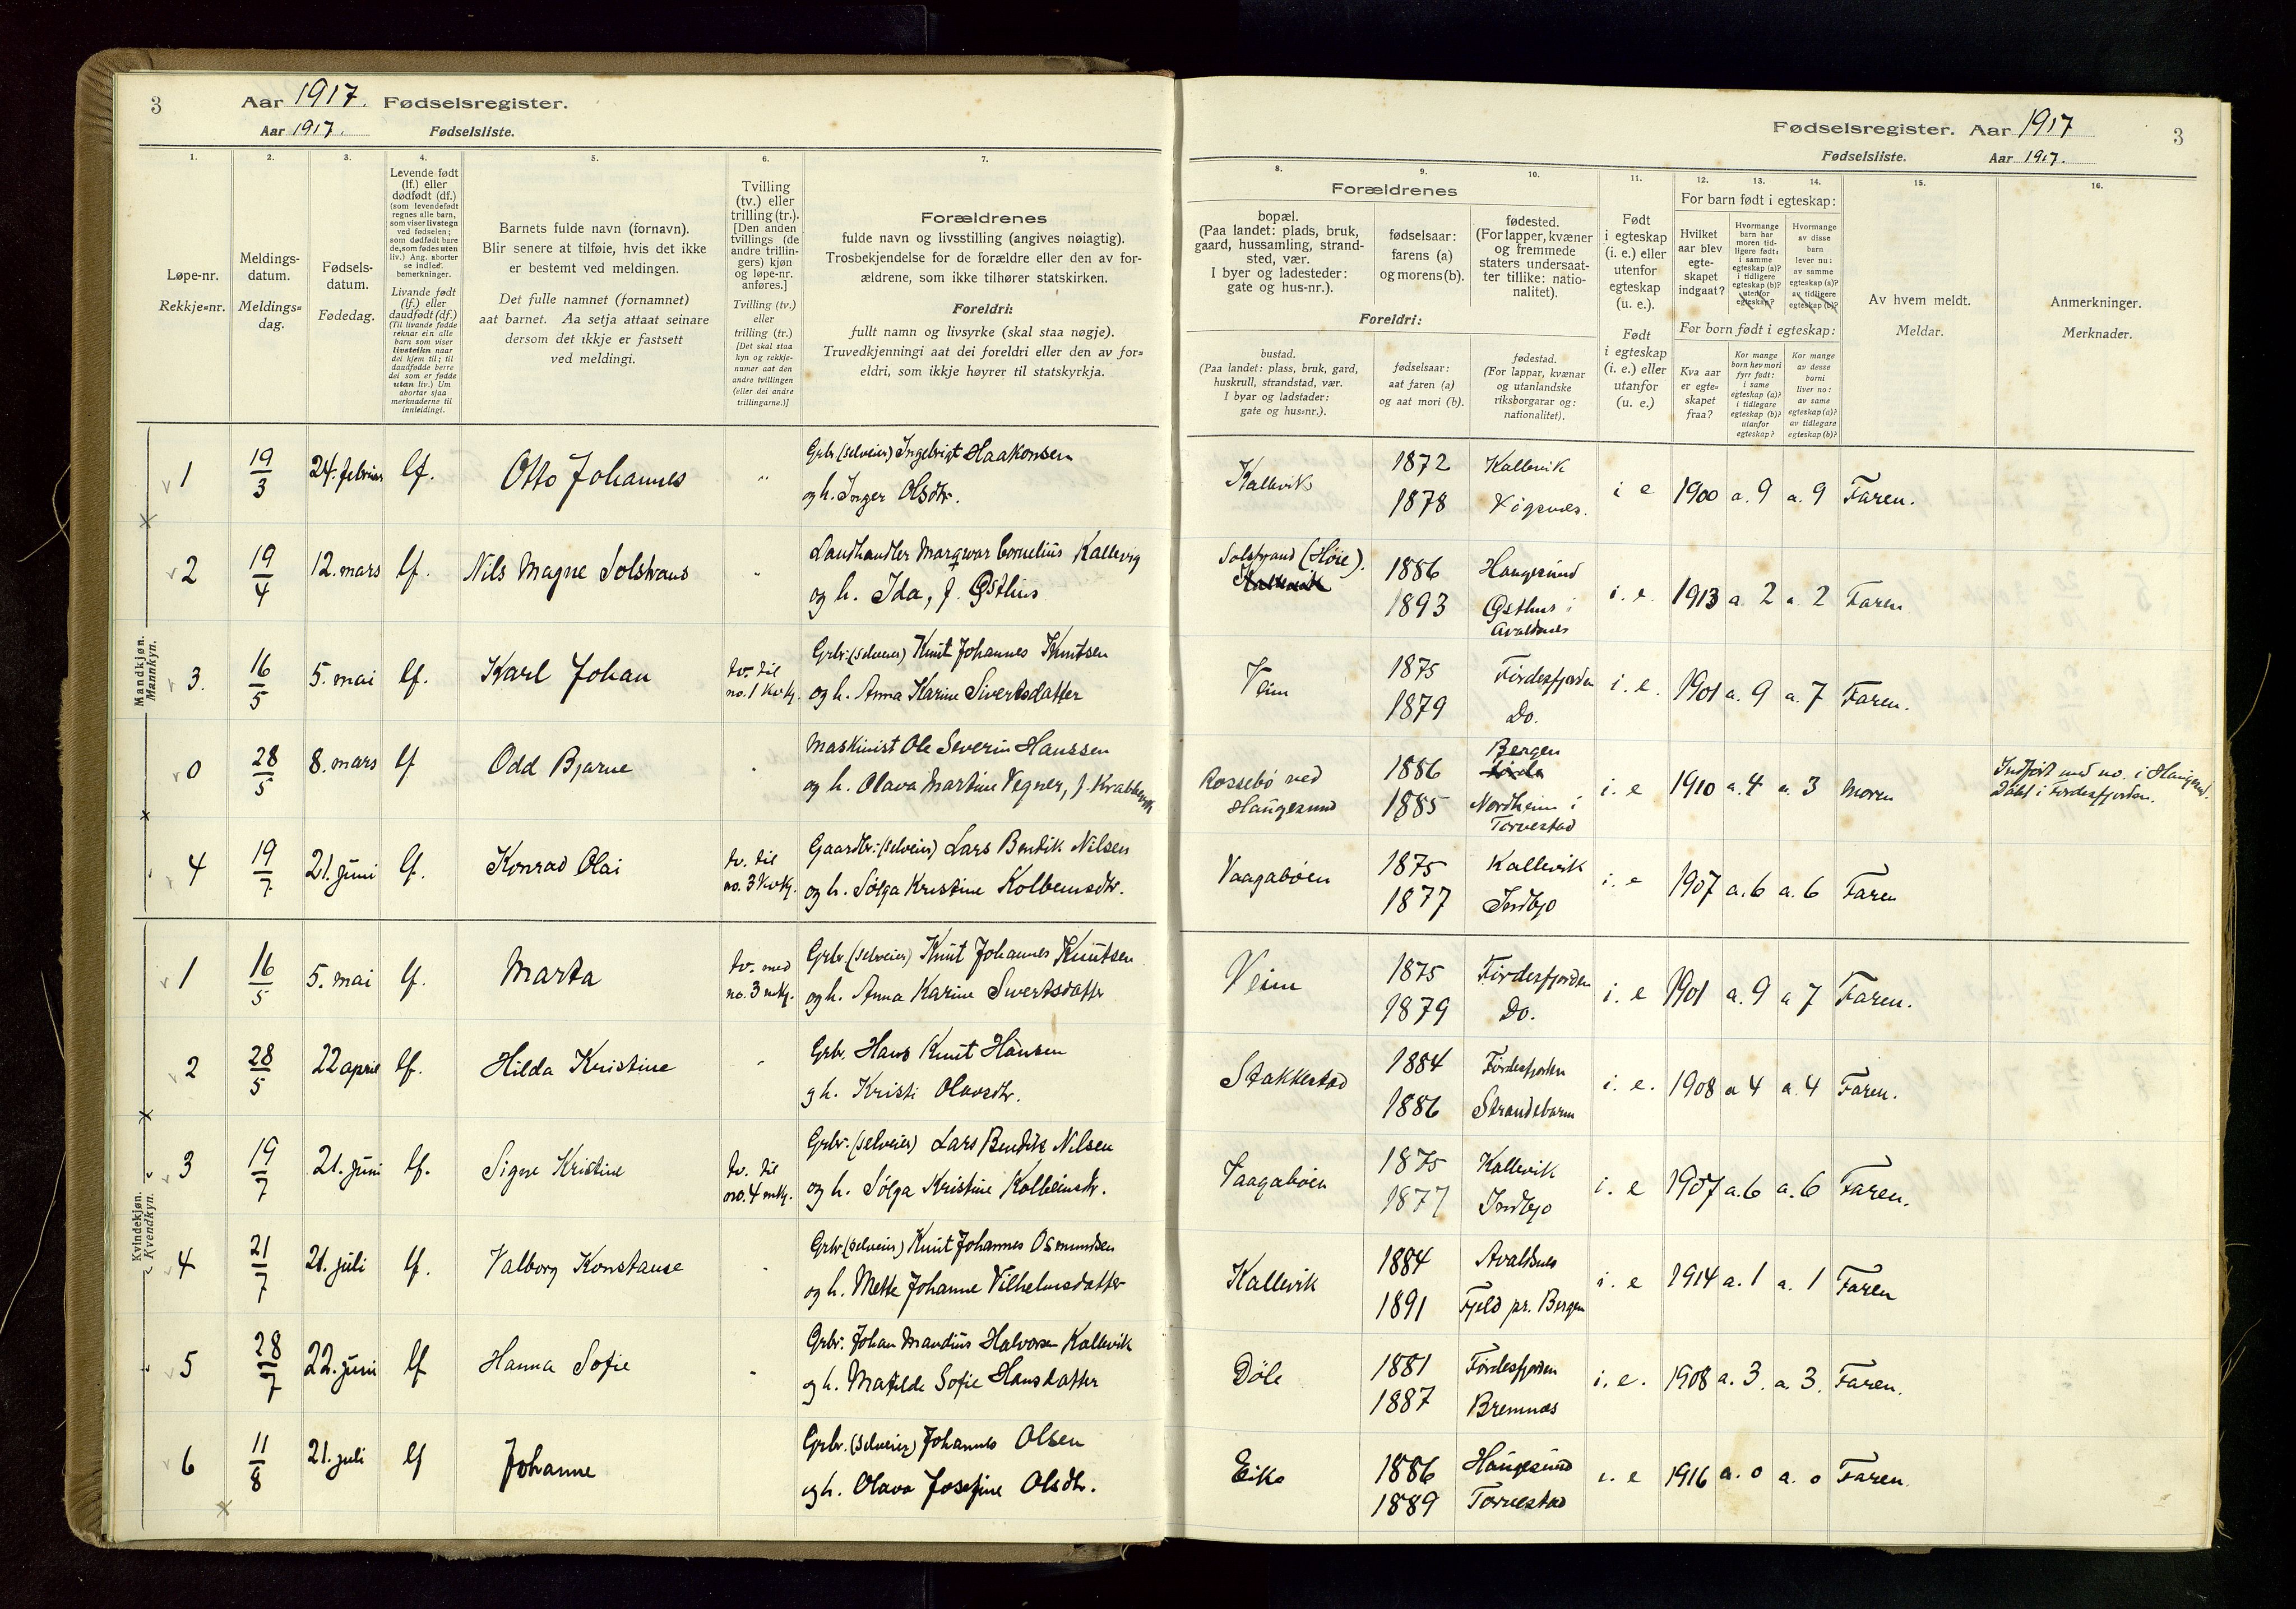 3
Aar 1917. Fødselsregister.
Aar 1917. Fødselsliste.
1.
2.
3.
4.
5.
6.
7.
Løpe-nr.
Rekkje=nr.
Meldings-
datum.
Meldings=
dag.
Fødsels-
datum.
Fødedag.
Levende født
(lf.) eller
dødfødt (df.)
(som levendefødt
regnes alle barn,
som viser livstegn
ved fødselen;
som dødfødt bare
de, som fødes uten
liv.) Ang. aborter
se indled.
bemerkninger.
Livande født
(lf.) eller
daudfødt (df.)
(Til livande fødde
reknar ein alle
barn som viser
livsteikn naar
dei kjem til; til
daudfødde berre
dei som er fødde
utan liv.) Um
abortar sjaa
merknaderne til
innleidingi.
Barnets fulde navn (fornavn).
Blir senere at tilføie, hvis det ikke
er bestemt ved meldingen.
Det fulle namnet (fornamnet)
aat barnet. Aa setja attaat seinare
dersom det ikkje er fastsett
ved meldingi.
Tvilling
(tv.) eller
trilling (tr.).
[Den anden
tvillings (de
andre trillin-
gers) kjøn
og løpe-nr.
anføres.]
Tvilling (tv.)
eller
trilling (tr.)
[Det skal staa
kyn og rekkje-
numer aat den
andre tvillingen
(eller dei andre
trillingarne.)]
Forældrenes
fulde navn og livsstilling (angives nøiagtig).
Trosbekjendelse for de forældre eller den av for-
ældrene, som ikke tilhører statskirken.
Foreldri:
fullt namn og livsyrke (skal staa nøgje).
Truvedkjenningi aat dei foreldri eller den av for=
eldri, som ikkje høyrer til statskyrkja.
Mandkjøn.
Mannkyn.
1 19/3 24. februar lf. Otto Johannes " Grbr. (selveier) Ingebrigt Haakonsen
og h. Inger Olsdtr.
2 19/4 12. mars lf. Nils Magne Solstrand " Landhandler Margvar Cornelius Kallevig
og h. Ida, f. Østhus
3. 16/5 5. mai lf. Karl Johan tv. til
no. 1 kvkj. Grbr. (selveier) Knut Johannes Knutsen
og h. Anna Karine Sivertsdatter
0 28/5 8. mars lf Odd Bjarne " Maskinist Ole Severin Hanssen
og h. Olava Martine Vegner, f.
4 19/7 21. juni lf. Konrad Olai tv. til
no. 3 kvkj. Gaardbr. (selveier) Lars Bendik Nilsen
og h. Sølga Kristine Kolbeinsdtr.
Kvindekjøn.
Kvendkyn.
1 16/5 5. mai lf. Marta tv. med
no. 3 mkj. Grbr. (selveier) Knut Johannes Knutsen
og h. Anna Karine Sivertsdatter
2 28/5 22 april lf. Hilda Kristine " Grbr. Hans Knut Hansen
g h. Kristi Olavsdtr.
3 19/7 21. juni lf. Signe Kristine tv. til
no. 4 mkj. Grbr. (selveier) Lars Bendik Nilsen
og h. Sølga Kristine Kolbeinsdtr.
4 21/7 21. juli lf. Valborg Konstanse " Grbr (selveier) Knut Johannes Osmundsen
og h. Mette Johanne Vilhelmsdatter
5 28/7 22. juni lf Hanna Sofie " Grbr. Johan Mandius Halvorsen Kallevik
og h. Matilde Sofie Hansdatter
6 11/8 21. juli lf Johanne Grbr. (selveier) Johannes Olsen
og h. Olava Josefine Olsdtr.
Fødselsregister. Aar 1917
Fødselsliste. Aar 1917.
3
8.
9.
10.
11.
12.
13.
14.
15.
16.
Forældrenes
bopæl.
(Paa landet: plads, bruk,
gaard, hussamling, strand-
sted, vær.
I byer og ladesteder:
gate og hus-nr.).
fødselsaar:
farens (a)
og morens (b).
fødested.
(For lapper, kvæner
og fremmede
staters undersaat-
ter tillike: natio-
nalitet).
Foreldri:
bustad.
(Paa landet: plass, bruk, gard,
huskrull, strandstad, vær.
I byar og ladstader:
gate og hus=nr.).
fødselsaar:
aat faren (a)
og aat mori (b).
fødestad.
(For lappar, kvænar
og utanlandske
riksborgarar og:
nationalitet).
Født
i egteskap
(i. e.) eller
utenfor
egteskap
(u. e.).
Født
i egteskap
(i. e.) eller
utanfor
(u. e.)
For barn født i egteskap:
Hvilket
aar blev
egte-
skapet
indgaat?
Hvormange
barn har
moren tid-
ligere født:
i samme
egteskap (a)?
i tidligere
egteskap (b)?
utenfor
egteskap?
Hvormange
av disse
barn
lever nu:
av samme
egteskap (a)?
av tidligere
egteskap (b)?
For born født i egteskap:
Kva aar
er egte-
skapet
fraa?
Kor mange
born hev mori
fyrr født:
i same
egteskap (a)?
i tidlegare
egteskap (b)?
utanfor
egteskap?
Kor mange
av desse
borni
liver no:
av same
egteskap (a)?
av tidlegare
egteskap (b)?
Av hvem meldt.
Meldar.
Anmerkninger.
Merknader.
Kallevik 1872 Kallevik i e 1900 a. 9 a. 9 Faren.
1878
Solstrand (Høie). 1886 Haugesund i. e. 1913 a. 2 a. 2 Faren
1893 Østhus i
Avaldsnes
Veim 1875 Førdesfjorden i. e. 1901 a. 9 a. 7 Faren.
1879 Do.
Rossebø ved
Haugesund 1886 Bergen i. e 1910 a. 4 a. 3 Moren
1885 Nordheim i
Torvestad
Indført med no. i Haugesund.
Døbt i Førdesfjorden.
Vaagabøen 1875 Kallevik i. e 1907 a. 6 a. 6 Faren
1877 Indbjo
Veim 1875 Førdesfjorden i. e 1901 a. 9 a 7 Faren.
1879 Do.
Stakkestad 1884 Førdesfjorden i. e. 1908 a 4 a. 4 Faren.
1886 Strandebarm
Vaagabøen 1875 Kallevik i. e 1907 a. 6 a. 6 Faren.
1877 Indbjo
Kallevik 1884 Avaldsnes i. e 1914 a. 1 a. 1 Faren
1891 Fjeld pr. Bergen
Døle 1881 Førdesfjorden i. e. 1908 a. 3. a. 3. Faren.
1887 Bremnes
Eike 1886 Haugesund i. e 1916 a. 0 a. 0 Faren.
1889 Torvestad